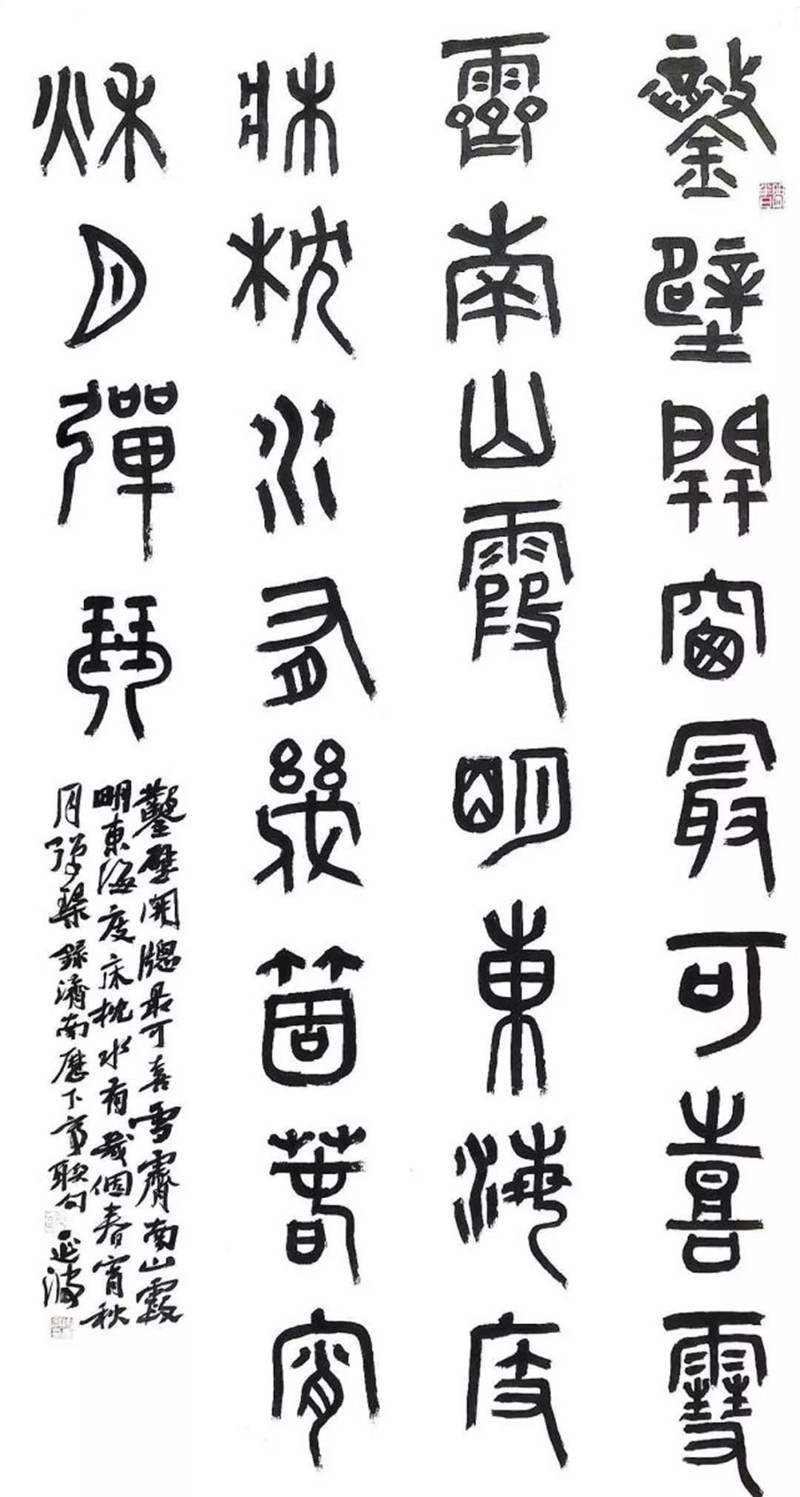 鑿壁開窗最可喜雪
霽南山霞明東海度
牀枕水有幾箇萅宵
秌月彈琴
鑿壁開牕最可喜雪霽南山霞
明東海度床枕水有幾個春宵秋
月彈琴錄濟南歷下亭聯句
延波